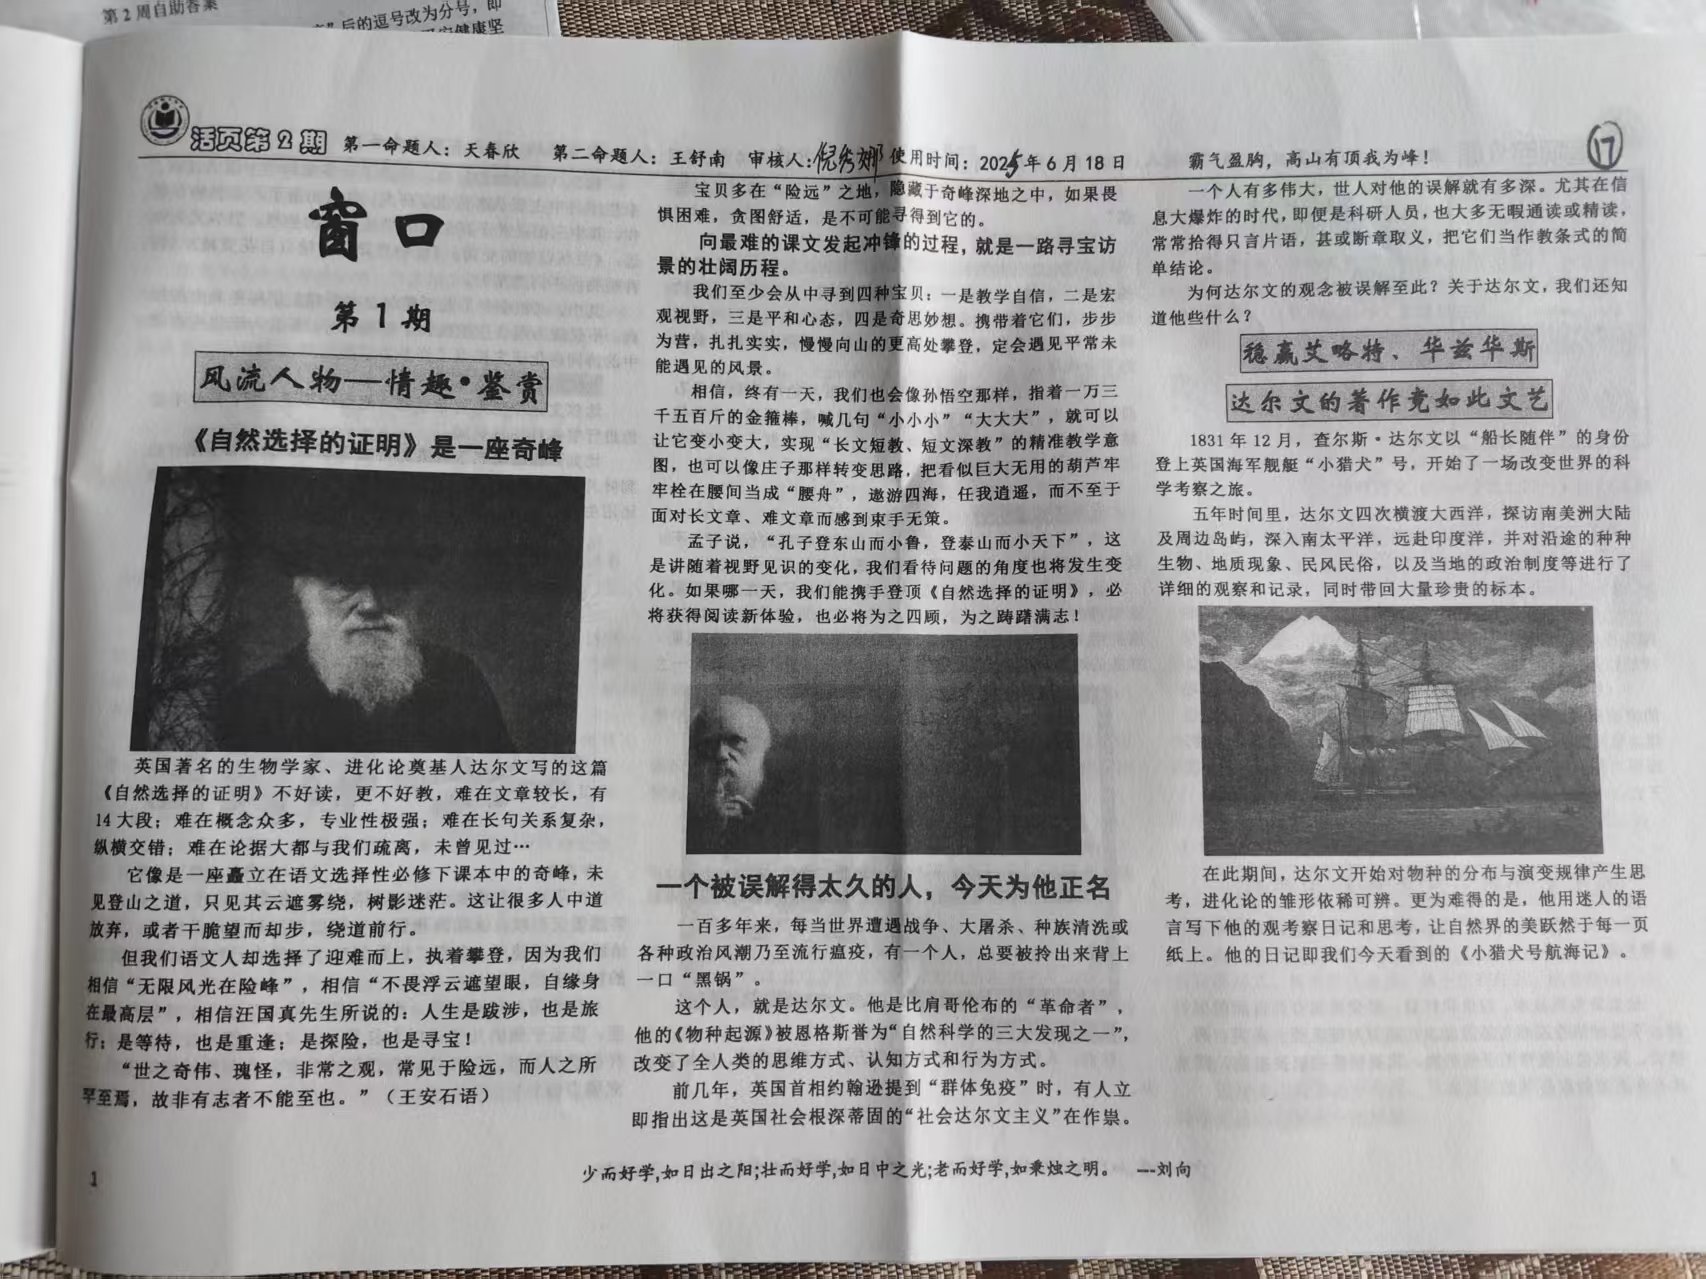 第2周自助答案
后的逗号改为分号，即
活页第2期 第一命题人：天春欣 第二命题人：王舒南 审核人：倪秀娜 使用时间：2025年6月18日
霸气盈胸，高山有顶我为峰！
17
窗口
第1期
风流人物—情趣·鉴赏
《自然选择的证明》是一座奇峰
英国著名的生物学家、进化论奠基人达尔文写的这篇
《自然选择的证明》不好读，更不好教，难在文章较长，有
14大段；难在概念众多，专业性极强；难在长句关系复杂，
纵横交错；难在论据大都与我们疏离，未曾见过…
它像是一座矗立在语文选择性必修下课本中的奇峰，未
见登山之道，只见其云遮雾绕，树影迷茫。这让很多人中道
放弃，或者干脆望而却步，绕道前行。
但我们语文人却选择了迎难而上，执着攀登，因为我们
相信“无限风光在险峰”，相信“不畏浮云遮望眼，自缘身
在最高层”，相信汪国真先生所说的：人生是跋涉，也是旅
行；是等待，也是重逢；是探险，也是寻宝！
“世之奇伟、瑰怪，非常之观，常见于险远，而人之所
罕至焉，故非有志者不能至也。”（王安石语）
宝贝多在“险远”之地，隐藏于奇峰深地之中，如果畏
惧困难，贪图舒适，是不可能寻得到它的。
向最难的课文发起冲锋的过程，就是一路寻宝访
景的壮阔历程。
我们至少会从中寻到四种宝贝：一是教学自信，二是宏
观视野，三是平和心态，四是奇思妙想。携带着它们，步步
为营，扎扎实实，慢慢向山的更高处攀登，定会遇见平常未
能遇见的风景。
相信，终有一天，我们也会像孙悟空那样，指着一万三
千五百斤的金箍棒，喊几句“小小小”“大大大”，就可以
让它变小变大，实现“长文短教、短文深教”的精准教学意
图，也可以像庄子那样转变思路，把看似巨大无用的葫芦牢
牢栓在腰间当成“腰舟”，遨游四海，任我逍遥，而不至于
面对长文章、难文章而感到束手无策。
孟子说，“孔子登东山而小鲁，登泰山而小天下”，这
是讲随着视野见识的变化，我们看待问题的角度也将发生变
化。如果哪一天，我们能携手登顶《自然选择的证明》，必
将获得阅读新体验，也必将为之四顾，为之踌躇满志！
一个被误解得太久的人，今天为他正名
一百多年来，每当世界遭遇战争、大屠杀、种族清洗或
各种政治风潮乃至流行瘟疫，有一个人，总要被拎出来背上
一口“黑锅”。
这个人，就是达尔文。他是比肩哥伦布的“革命者”，
他的《物种起源》被恩格斯誉为“自然科学的三大发现之一”，
改变了全人类的思维方式、认知方式和行为方式。
前几年，英国首相约翰逊提到“群体免疫”时，有人立
即指出这是英国社会根深蒂固的“社会达尔文主义”在作祟。
一个人有多伟大，世人对他的误解就有多深。尤其在信
息大爆炸的时代，即便是科研人员，也大多无暇通读或精读，
常常拾得只言片语，甚或断章取义，把它们当作教条式的简
单结论。
为何达尔文的观念被误解至此？关于达尔文，我们还知
道他些什么？
稳赢艾略特、华兹华斯
达尔文的著作竟如此文艺
1831年12月，查尔斯·达尔文以“船长随伴”的身份
登上英国海军舰艇“小猎犬”号，开始了一场改变世界的科
学考察之旅。
五年时间里，达尔文四次横渡大西洋，探访南美洲大陆
及周边岛屿，深入南太平洋，远赴印度洋，并对沿途的种种
生物、地质现象、民风民俗，以及当地的政治制度等进行了
详细的观察和记录，同时带回大量珍贵的标本。
在此期间，达尔文开始对物种的分布与演变规律产生思
考，进化论的雏形依稀可辨。更为难得的是，他用迷人的语
言写下他的观考察日记和思考，让自然界的美跃然于每一页
纸上。他的日记即我们今天看到的《小猎犬号航海记》。
1
少而好学,如日出之阳;壮而好学,如日中之光;老而好学,如秉烛之明。 ---刘向